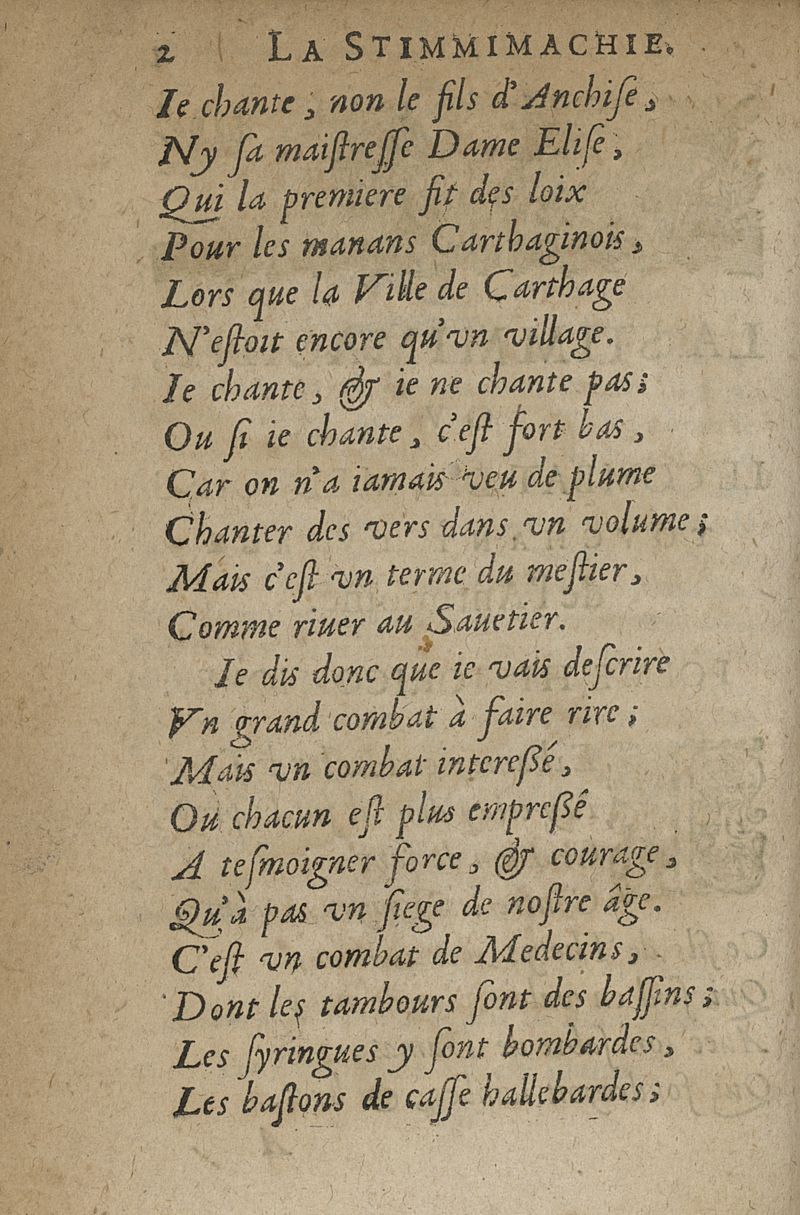 2 LA STIMMIMACHIE.
Ie chante, non le fils d'Anchiſe,
Ny ſa maiſtreſſe Dame Eliſe,
Qui la premiere fit des loix
Pour les manans Carthaginois,
Lors que la Ville de Carthage
N'eſtoit encore qu'vn village.
Ie chante, & ie ne chante pas;
Ou ſi ie chante, c'eſt fort bas,
Car on n'a iamais veu de plume
Chanter des vers dans vn volume;
Mais c'eſt vn terme du meſtier,
Comme riuer au Sauetier.
Ie dis donc que ie vais deſcrire
Vn grand combat à faire rire;
Mais vn combat intereßé,
Ou chacun eſt plus empreßé
A teſmoigner force, & courage,
Qu'à pas vn ſiege de noſtre âge.
C'eſt vn combat de Medecins,
Dont les tambours ſont des baſſins;
Les ſyringues y ſont bombardes,
Les baſtons de caſſe hallebardes;